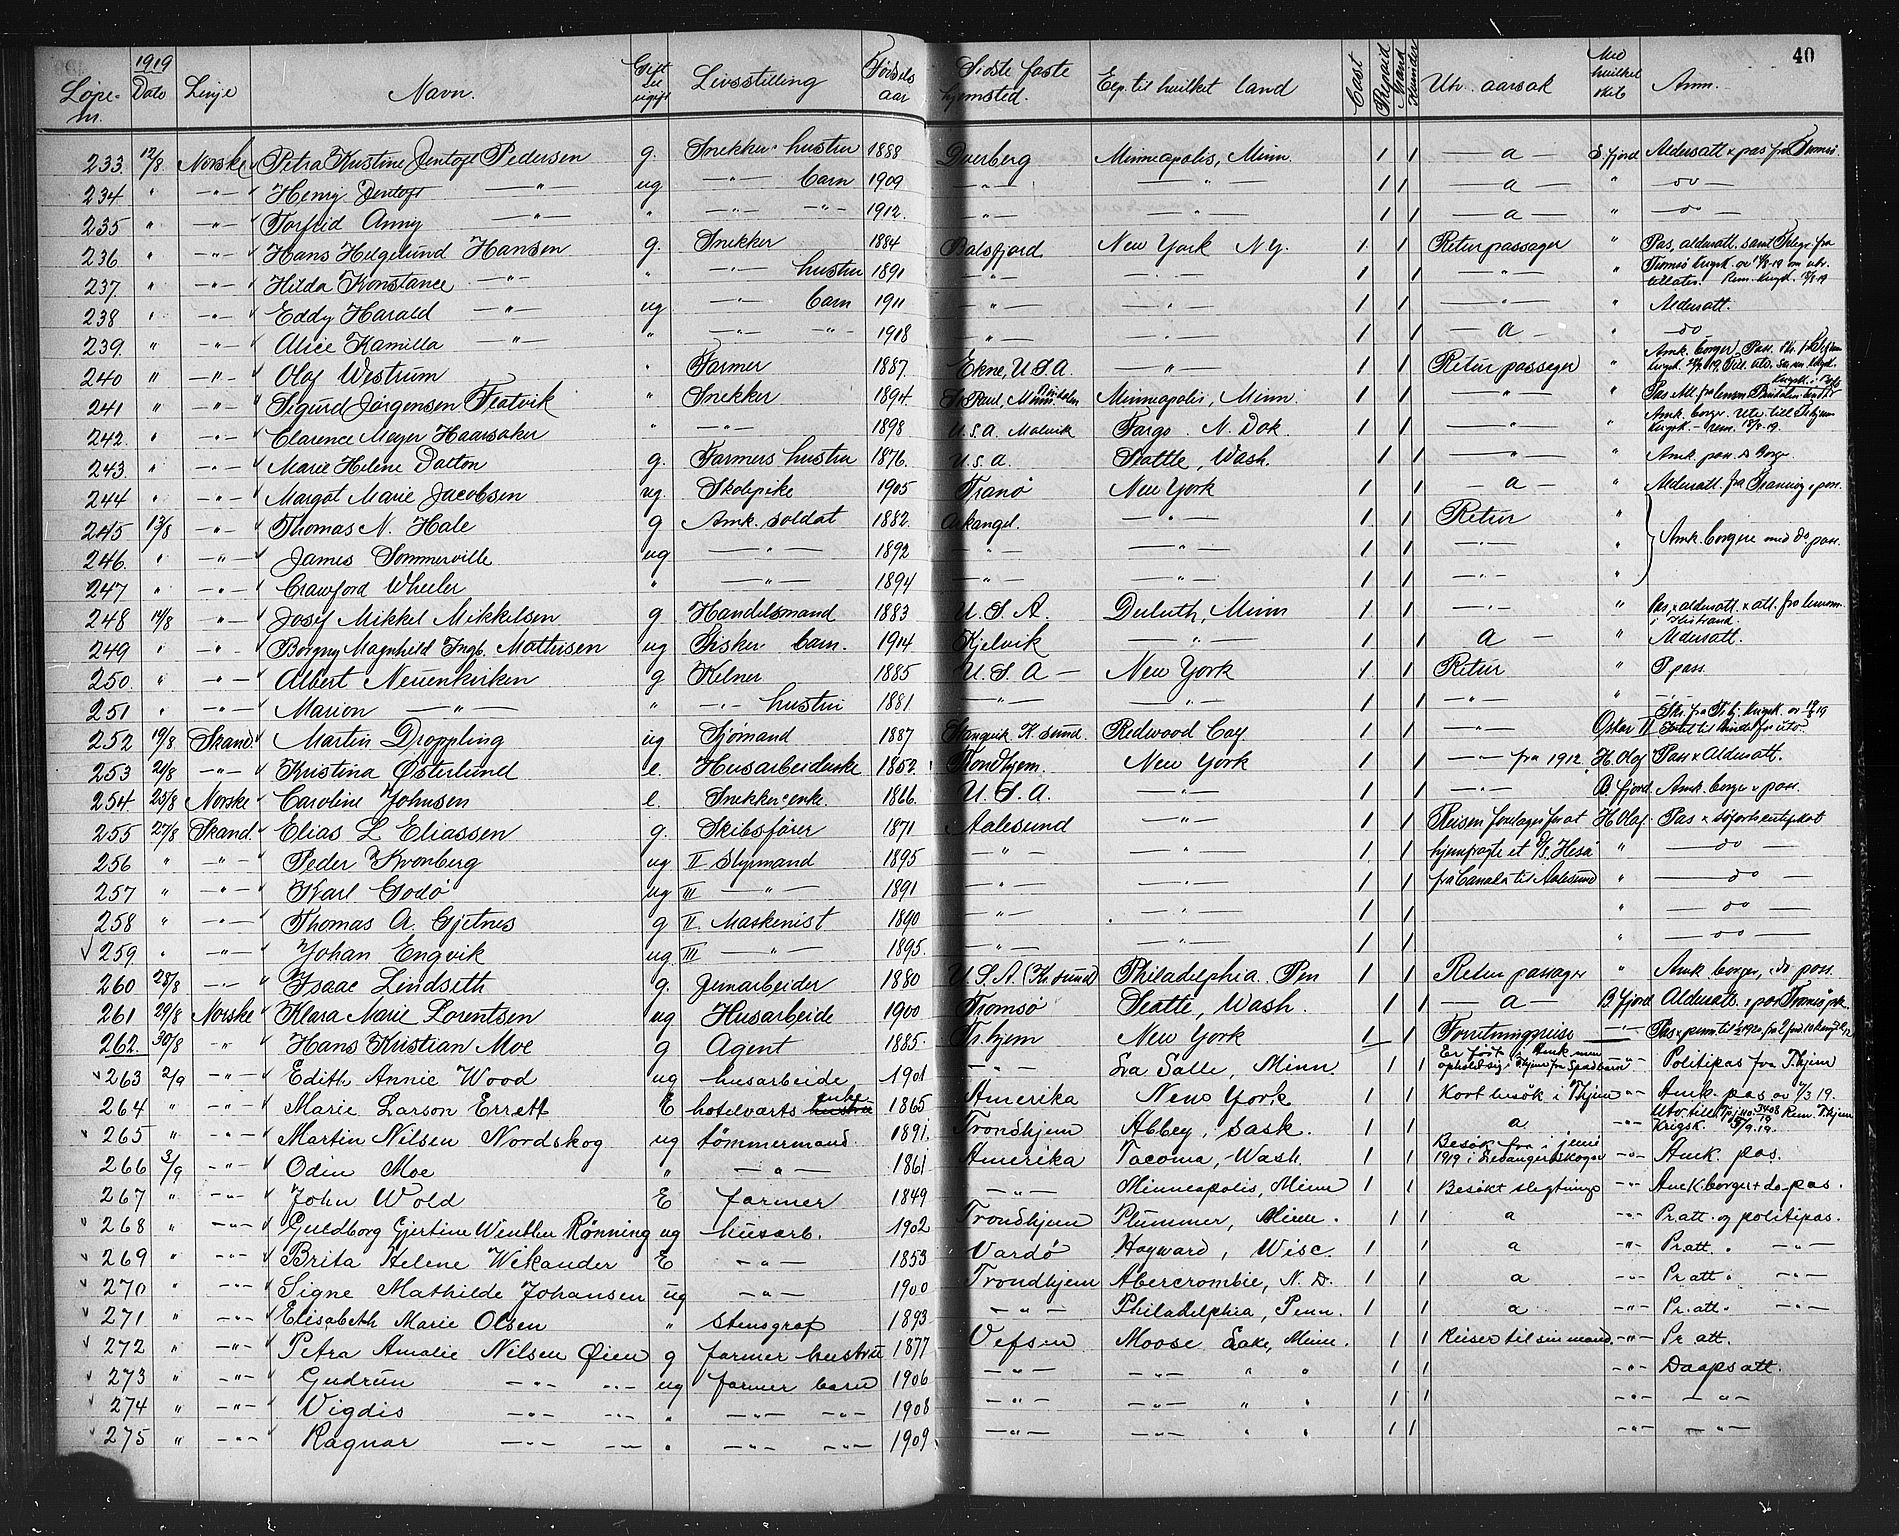 40
Løpe-nr. 1919 Dato Linje Navn. Gift el. ugift Livsstilling Fødsels aar Sidste faste hjemsted. Exp. til hvilket land Cast Prepaid Mænd Kvinder Utv. aarsak Med hvilket skib Anm.
233. 12/8 Norske Petra Kristine Jentoft Pedersen g. Snekker hustru 1888 Dverberg Minneapolis, Minn. 1 1 — a — S.fjord Aldersatt x pas fra Tromsø.
234 " —"— Henry Jentoft —"— ug —"— barn 1909 —"— —"— 1 1 — a — " — do —
235 " —"— Torfrid Anny —"— " —"— —"— 1912. —"— —"— 1 1 — a — " — do —
236 " —"— Hans Helgelund Hansen g. Snekker 1884 Balsfjord New York N.Y. 1 1 Returpassager " Pas, aldersatt. samt Telegr. fra
237. " —"— Hilda Konstance —"— " —"— hustru 1891 —"— —"— 1 1 —"— " Tromsø krigsk. av 12/8-19 om utv. tillates.
238 " —"— Eddy Harald —"— ug —"— barn 1911 —"— —"— 1 1 —"— " Aldersatt.
239. " —"— Alice Kamilla —"— " —"— —"— 1918 —"— —"— 1 1 — a — " — do
240 " —"— Olaf Westrum " Farmer 1887. Ekne, U.S.A. —"— 1 1 Retur passager " Amk. borger, Pass.
241 " —"— Sigurd Jørgensen " Snekker 1894 St Paul, Minn. Minneapolis, Minn 1 1 —"— " Pas
242. " —"— Clarence Meyer Haarsaker " —"— 1898 U.S.A. Malvik Fargo. N. Dak. 1 1 —"— " Amk. borger.
243 " —"— Marie Helene Dalton g. Farmers hustru 1876. U.S.A. Seattle, Wash. 1 1 —"— " Amk. pass. & Borger
244 " —"— Margot Marie Jacobsen ug. Skolepike 1905 Tranø New York 1 1 — a — " Aldersatt. fra Tranøy, pass.
245 13/8 —"— Thomas N. Hale g Amk. soldat 1882. Arkangel. —"— 1 1 Retur " Amk. borgere med do. pass.
246. " —"— James Sommerville ug —"— 1892 —"— —"— 1 1 —"— "
247 " —"— Crawford Wheeler " —"— 1894 —"— —"— 1 1 —"— "
248 14/8 —"— Josef Mikkel Mikkelsen g Handelsmand 1883 U.S.A. Duluth, Minn 1 1 —"— " Pas, x aldersatt. x att. fra lensm. i
249 " —"— Borgny Magnhild Ingb. Mathisen ug Fisker barn. 1914 Kjelvik —"— 1 1 a — " Aldersatt.
250. " —"— Albert Neuenkirken g Kelner 1885 U.S.A — New York 1 1 Retur " P.pass.
251 " —"— Marion —"— " —"— hustru 1881 —"— —"— 1 1 —"— " —"—
252 19/8 Skand. Martin Droppling ug Sjømand 1887 Stangvik K.sund Redwood Cay 1 1 —"— Oskar II
253 21/8 —"— Kristina Østerlund e. Husarbeiderske 1852. Trondhjem. New York 1 1 —"— fra 1912. H.Olaf Pass x Aldersatt.
254 25/8 Norske Caroline Johnsen e. Snekker enke. 1866. U.S.A. —"— 1 1 —"— B.fjord. Amk. borger x pass.
255 27/8 Skand. Elias L Eliassen g. Skibsfører 1871 Aalesund —"— 1 1 Reisen foretages for at H.Olaf Pas x søfartscertifikat
256 " —"— Peder Kvonberg ug II Styrmand 1895 —"— —"— 1 1 hjemfragte et D/S. Hesø " — do —
257 " —"— Karl Godø ug III —"— 1891 —"— —"— 1 1 fra Canada til Aalesund " — do —
258 " —"— Thomas A. Gjetnes g II. Maskenist 1890 —"— —"— 1 1 " — do —
259 " —"— Johan Engvik ug. III —"— 1895. —"— —"— 1 1 " — do —
260 28/8 —"— Isaac Lindseth g. Jernarbeider 1880 U.S.A. (Kr.sund) Philadelphia. Pen 1 1 Retur passager " Amk borger, do pass.
261 29/8 Norske Klara Marie Lorentsen ug Husarbeide 1900 Tromsø Seatte, Wash. 1 1 — a — B fjord Aldersatt. x pas Tromsø
262. 30/8 " Hans Kristian Moe g Agent 1885. Tr.hjem New York 1 1 Forretningsreise —"—
263 2/9 —"— Edith Annie Wood ug husarbeide 1901 —"— Lva Salle, Minn. 1 1 Er født i Amk. men opholdt sig i Thjem fra Spædbarn —"— Politipas fra T.hjem
264 " —"— Marie Larson Errett E hotelværts enke 1865 Amerika New York 1 1 Kort besøk i T.hjem —"— Amk. pas av 4/3 19.
265 " —"— Martin Nilsen Nordskog ug tømmermand. 1891. Trondhjem Abbey, Sask. 1 1 a —"— Utv. till. Krigsk. 5/9.19.
266 3/9 —"— Odin Moe " —"— 1861 Amerika Tacoma, Wash. 1 1 Besøk fra i juni 1919 i Levanger & Skogn —"— Amk. pas.
267 " —"— John Wold E farmer 1849 —"— Minneapolis, Minn 1 1 Besøkt slegtninge —"— Amk borger + do. pas.
268 " —"— Guldborg Gjertine Winther Rønning ug husarb. 1902 Trondhjem Plummer, Minn. 1 1 a —"— Pr.att. og politipas.
269 " —"— Brita Helene Wikander E —"— 1853 Vardø Hayward, Wisc. 1 1 a —"— Pr.att. " —"—
270 " —"— Signe Mathilde Johansen ug —"— 1900 Trondhjem Abercrombie, N.D. 1 1 a —"— Pr att. " —"—
271 " —"— Elisabeth Marie Olsen " stenograf 1893 —"— Philadelphia, Penn. 1 1 a —"— Pr. att. " —"—
272 " —"— Petra Amalie Nilsen Øien g farmer hustru 1877 Vefsen Moose Lake, Minn. 1 1 Reiser til sin mand. —"— Pr att.
273 " —"— Gudrun —"— —"— ug farmer barn 1906 —"— —"— " " 1 1 —"— Daapsatt.
274 " —"— Vigdis —"— —"— " —"— —"— 1908 —"— —"— " " 1 1 —"— —"—
275 " —"— Ragnar —"— —"— " —"— —"— 1909 —"— —"— " " 1 1 —"— —"—